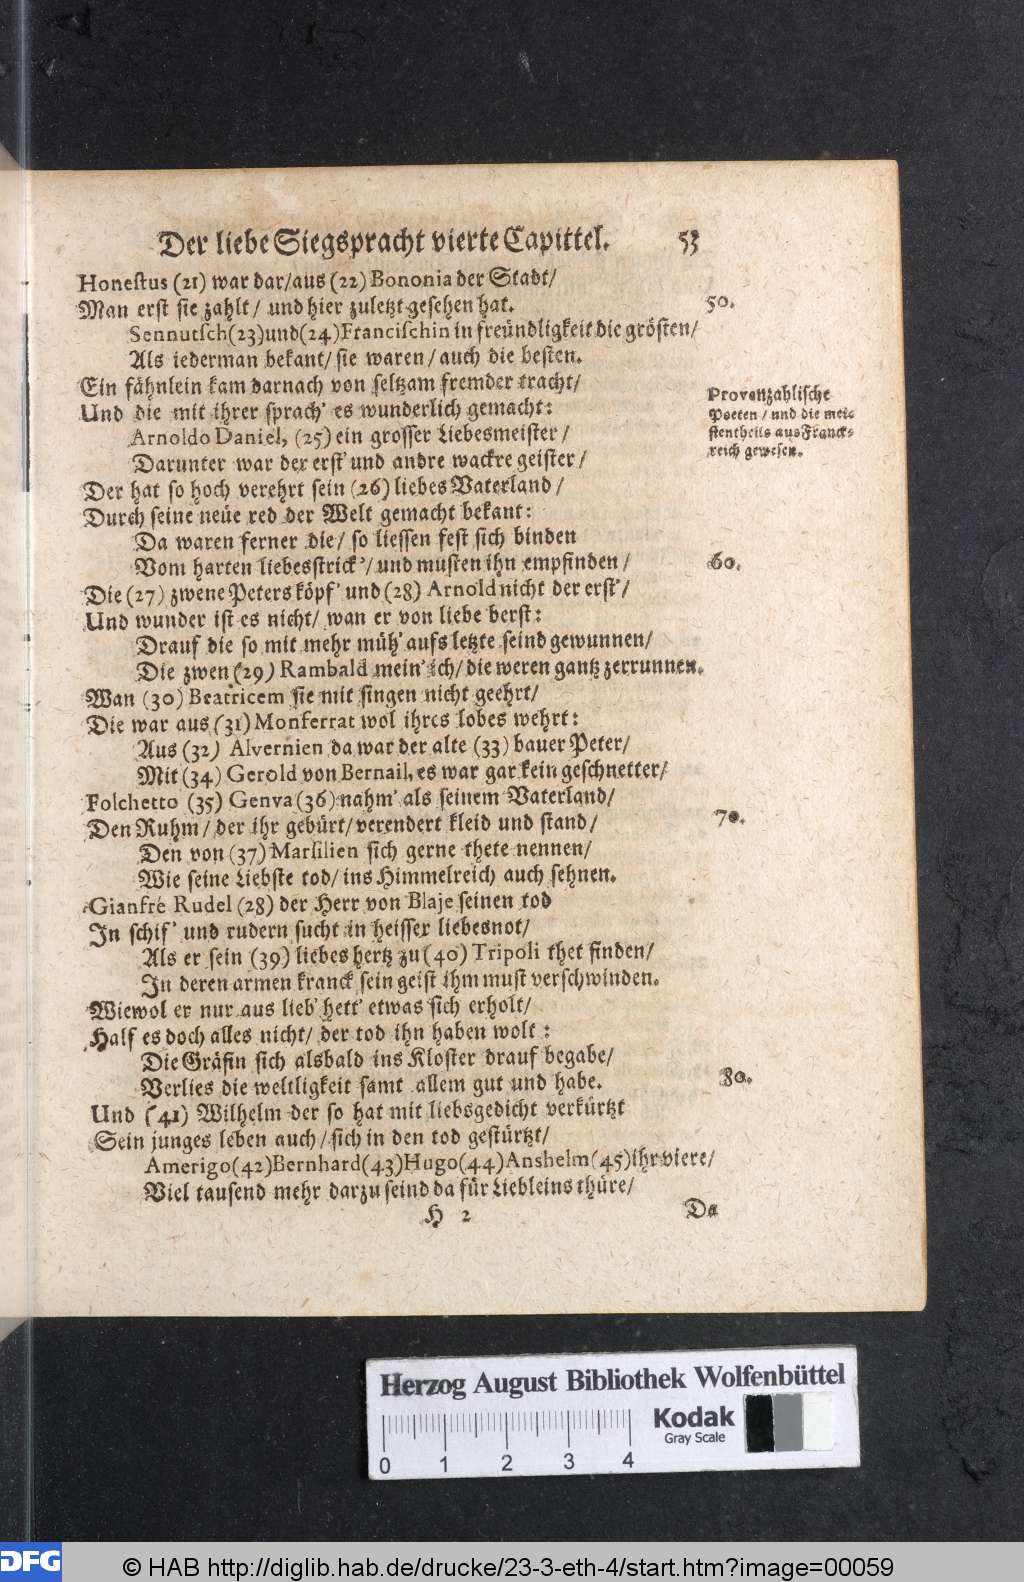 Der liebe Siegspracht vierte Capittel. 53
Honestus (21) war dar/aus (22) Bononia der Stadt/
Man erst sie zahlt/ und hier zuletzt gesehen hat. 50.
Sennutsch(23)und(24)Francischin in freündligkeit die grösten/
Als iederman bekant/ sie waren/ auch die besten.
Ein fähnlein kam darnach von seltzam fremder tracht/
Und die mit ihrer sprach' es wunderlich gemacht:
Provenzahlische
Poeten/ und die mei-
stentheils aus Franck-
reich gewesen.
Arnoldo Daniel, (25) ein grosser Liebesmeister/
Darunter war der erst' und andre wackre geister/
Der hat so hoch verehrt sein (26) liebes Vaterland/
Durch seine neüe red der Welt gemacht bekant:
Da waren ferner die/ so liessen fest sich binden
Vom harten liebesstrick'/ und musten ihn empfinden/ 60.
Die (27) zwene Peters köpf' und (28) Arnold nicht der erst'/
Und wunder ist es nicht/ wan er von liebe berst:
Drauf die so mit mehr müh' aufs letzte seind gewunnen/
Die zwen (29) Rambald mein' ich/ die weren gantz zerrunnen.
Wan (30) Beatricem sie mit singen nicht geehrt/
Die war aus (31) Monferrat wol ihres lobes wehrt:
Aus (32) Alvernien da war der alte (33) bauer Peter/
Mit (34) Gerold von Bernail, es war gar kein geschnetter/
Folchetto (35) Genva (36) nahm' als seinem Vaterland/
Den Ruhm/ der ihr gebürt/ verendert kleid und stand/ 70.
Den von (37) Marsilien sich gerne thete nennen/
Wie seine Liebste tod/ ins Himmelreich auch sehnen.
Gianfré Rudel (28) der Herr von Blaje seinen tod
In schif' und rudern sucht in heisser liebesnot/
Als er sein (39) liebes hertz zu (40) Tripoli thet finden/
In deren armen kranck sein geist ihm must verschwinden.
Wiewol er nur aus lieb' hett' etwas sich erholt/
Half es doch alles nicht/ der tod ihn haben wolt:
Die Gräfin sich alsbald ins Kloster drauf begabe/
Verlies die weltligkeit samt allem gut und habe. 80.
Und (41) Wilhelm der so hat mit liebsgedicht verkürtzt
Sein junges leben auch/ sich in den tod gestürtzt/
Amerigo(42)Bernhard(43)Hugo(44)Anshelm(45)ihr viere/
Viel tausend mehr darzu seind da für Liebleins thüre/
H 2 Da
Herzog August Bibliothek Wolfenbüttel
Kodak
Gray Scale
0 1 2 3 4
DFG © HAB http://diglib.hab.de/drucke/23-3-eth-4/start.htm?image=00059